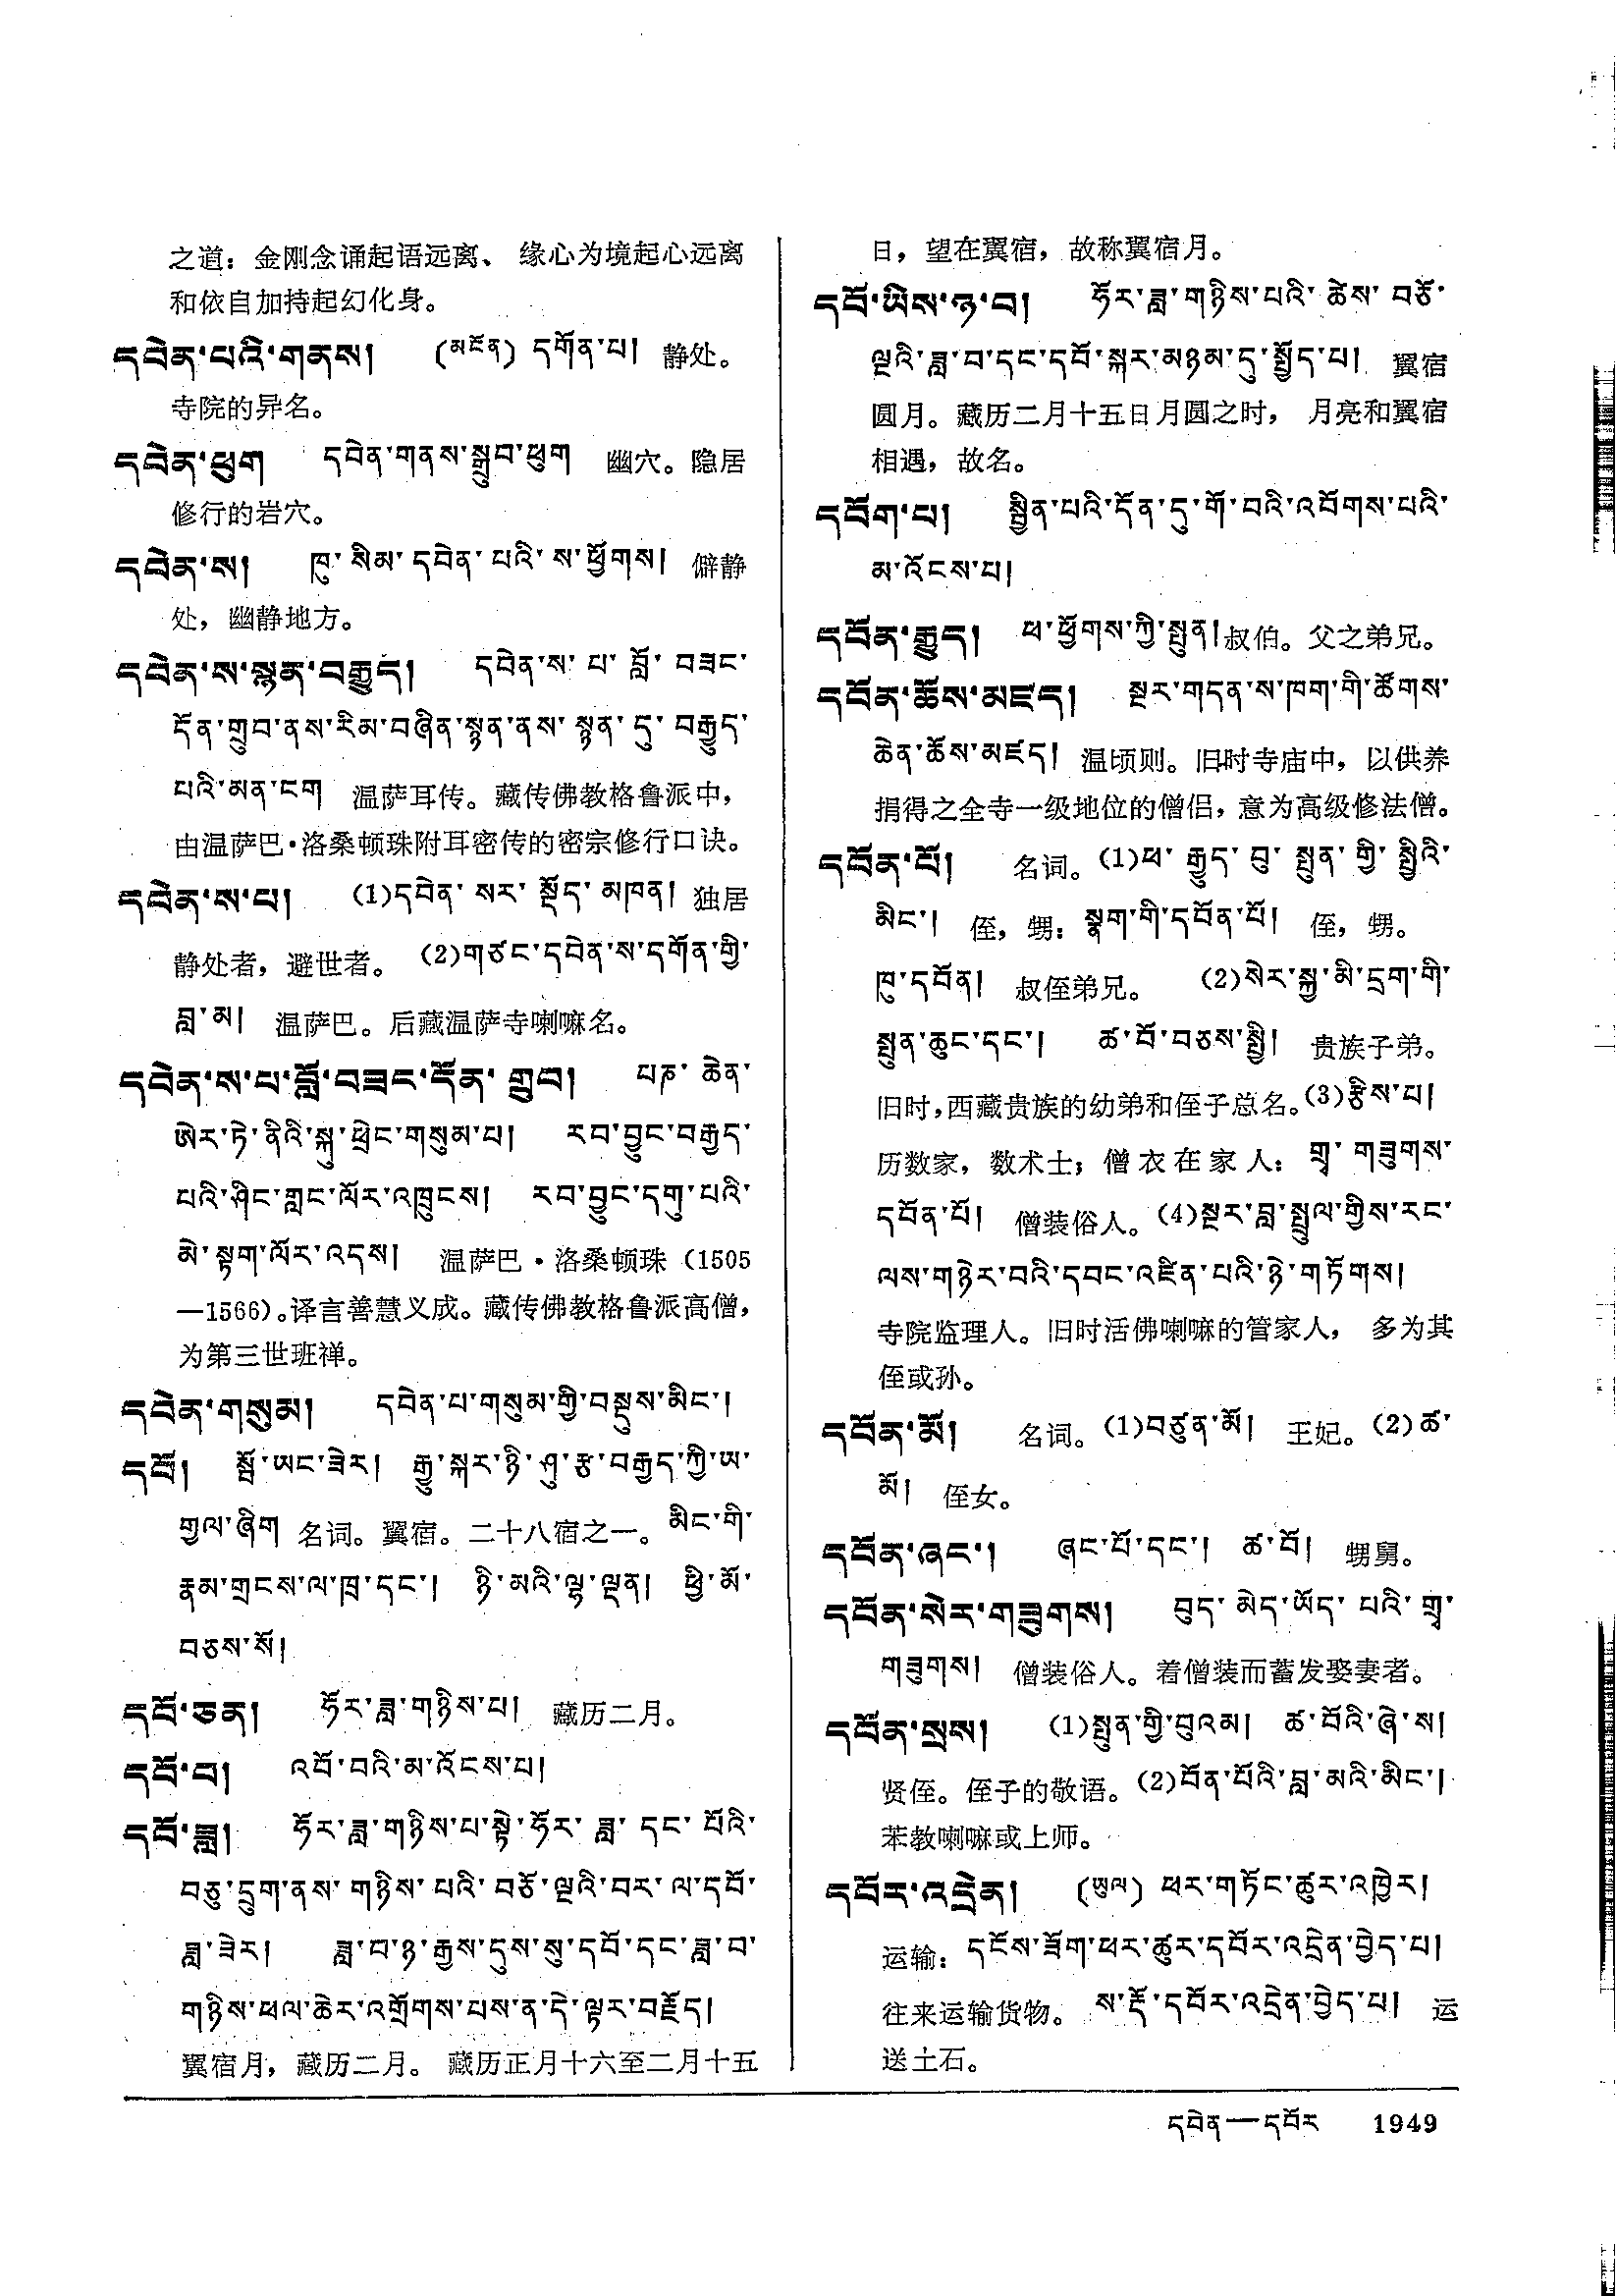 之道：金刚念诵起语远离、缘心为境起心远离
和依自加持起幻化身。
དབེན་པའི་གནས། (མངོན) དགོན་པ། 静处。
寺院的异名。
དབེན་ཕུག དབེན་གནས་སྒྲུབ་ཕུག 幽穴。隐居
修行的岩穴。
དབེན་ས། ཁུ་སིམ་དབེན་པའི་ས་ཕྱོགས། 僻静
处，幽静地方。
དབེན་ས་སྙན་བརྒྱུད། དབེན་ས་པ་བློ་བཟང་
དོན་གྲུབ་ནས་རིམ་བཞིན་སྙན་ནས་སྙན་དུ་བརྒྱུད་
པའི་མན་ངག 温萨耳传。藏传佛教格鲁派中，
由温萨巴·洛桑顿珠附耳密传的密宗修行口诀。
དབེན་ས་པ། (1)དབེན་སར་སྡོད་མཁན། 独居
静处者，避世者。 (2)གཙང་དབེན་ས་དགོན་གྱི་
བླ་མ། 温萨巴。后藏温萨寺喇嘛名。
དབེན་ས་པ་བློ་བཟང་དོན་གྲུབ། པཎ་ཆེན་
ཨེར་ཏེ་ནིའི་སྐུ་ཕྲེང་གསུམ་པ། རབ་བྱུང་བརྒྱད་
པའི་ཤིང་གླང་ལོར་འཁྲུངས། རབ་བྱུང་དགུ་པའི་
མེ་སྟག་ལོར་འདས། 温萨巴·洛桑顿珠（1505
—1566）。译言善慧义成。藏传佛教格鲁派高僧，
为第三世班禅。
དབེན་གསུམ། དབེན་པ་གསུམ་གྱི་བསྡུས་མིང་།
དབོ། སྦོ་ཡང་ཟེར། རྒྱུ་སྐར་ཉི་ཤུ་རྩ་བརྒྱད་ཀྱི་ཨ་
གྱལ་ཞིག 名词。翼宿。二十八宿之一。མིང་གི་
རྣམ་གྲངས་ལ་ཁྲ་དང་། ཉི་མའི་ལྷ་ལྡན། ཕྱི་མོ་
བཅས་སོ།
དབོ་ཅན། ཧོར་ཟླ་གཉིས་པ། 藏历二月。
དབོ་བ། འབོ་བའི་མ་འོངས་པ།
དབོ་ཟླ། ཧོར་ཟླ་གཉིས་པ་སྟེ་ཧོར་ཟླ་དང་པོའི་
བཅུ་དྲུག་ནས་གཉིས་པའི་བཅོ་ལྔའི་བར་ལ་དབོ་
ཟླ་ཟེར། ཟླ་བ་ཉ་རྒྱས་དུས་སུ་དབོ་དང་ཟླ་བ་
གཉིས་ཕལ་ཆེར་འགྲོགས་པས་ན་དེ་ལྟར་བརྗོད།
翼宿月，藏历二月。藏历正月十六至二月十五
日，望在翼宿，故称翼宿月。
དབོ་ཡིས་ཉ་བ། ཧོར་ཟླ་གཉིས་པའི་ཚེས་བཅོ་
ལྔའི་ཟླ་བ་དང་དབོ་སྐར་མཉམ་དུ་སྤྱོད་པ། 翼宿
圆月。藏历二月十五日月圆之时，月亮和翼宿
相遇，故名。
དབོག་པ། སྦྱིན་པའི་དོན་དུ་གོ་བའི་འབོགས་པའི་
མ་འོངས་པ།
དབོན་རྒྱུད། ཕ་ཕྱོགས་ཀྱི་སྤུན། 叔伯。父之弟兄。
དབོན་ཆོས་མཛད། སྔར་གདན་ས་ཁག་གི་ཚོགས་
ཆེན་ཆོས་མཛད། 温顷则。旧时寺庙中，以供养
捐得之全寺一级地位的僧侣，意为高级修法僧。
དབོན་པོ། 名词。(1)ཕ་རྒྱུད་བུ་སྤུན་གྱི་སྤྱིའི་
མིང་། 侄，甥：སྣག་གི་དབོན་པོ། 侄，甥。
ཁུ་དབོན། 叔侄弟兄。 (2)སེར་སྐྱ་མི་དྲག་གི་
སྤུན་ཆུང་དང་། ཚ་བོ་བཅས་སྤྱི། 贵族子弟。
旧时，西藏贵族的幼弟和侄子总名。(3)རྩིས་པ།
历数家，数术士；僧衣在家人：གྲྭ་གཟུགས་
དབོན་པོ། 僧装俗人。(4)སྔར་བླ་སྤྲུལ་གྱིས་རང་
ལས་གཉེར་བའི་དབང་འཛིན་པའི་ཉེ་གཏོགས།
寺院监理人。旧时活佛喇嘛的管家人，多为其
侄或孙。
དབོན་མོ། 名词。(1)བཙུན་མོ། 王妃。(2)ཚ་
མོ། 侄女。
དབོན་ཞང་། ཞང་པོ་དང་། ཚ་བོ། 甥舅。
དབོན་སེར་གཟུགས། བུད་མེད་ཡོད་པའི་གྲྭ་
གཟུགས། 僧装俗人。着僧装而蓄发娶妻者。
དབོན་སྲས། (1)སྤུན་གྱི་བུའམ། ཚ་བོའི་ཞེ་ས།
贤侄。侄子的敬语。(2)བོན་པོའི་བླ་མའི་མིང་།
苯教喇嘛或上师。
དབོར་འདྲེན། (ཡུལ) ཕར་གཏོང་ཚུར་འཁྱེར།
运输：དངོས་ཟོག་ཕར་ཚུར་དབོར་འདྲེན་བྱེད་པ།
往来运输货物。ས་རྡོ་དབོར་འདྲེན་བྱེད་པ། 运
送土石。
དབེན—དབོར 1949